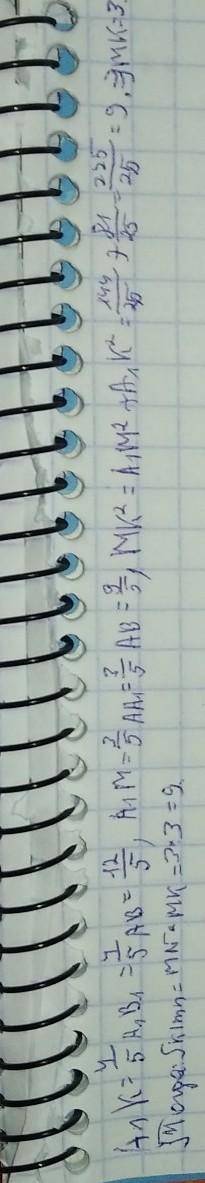 A₁K = 4/5 A₁B₁ = 4/5 AB = 12/5, A₁M = 3/5 AA₁ = 3/5 AB = 9/5, MK² = A₁M² + A₁K² = 144/25 + 81/25 = 225/25 = 9, ⇒ MK = 3.
Тогда Sklmn = MN · MK = 3 · 3 = 9.